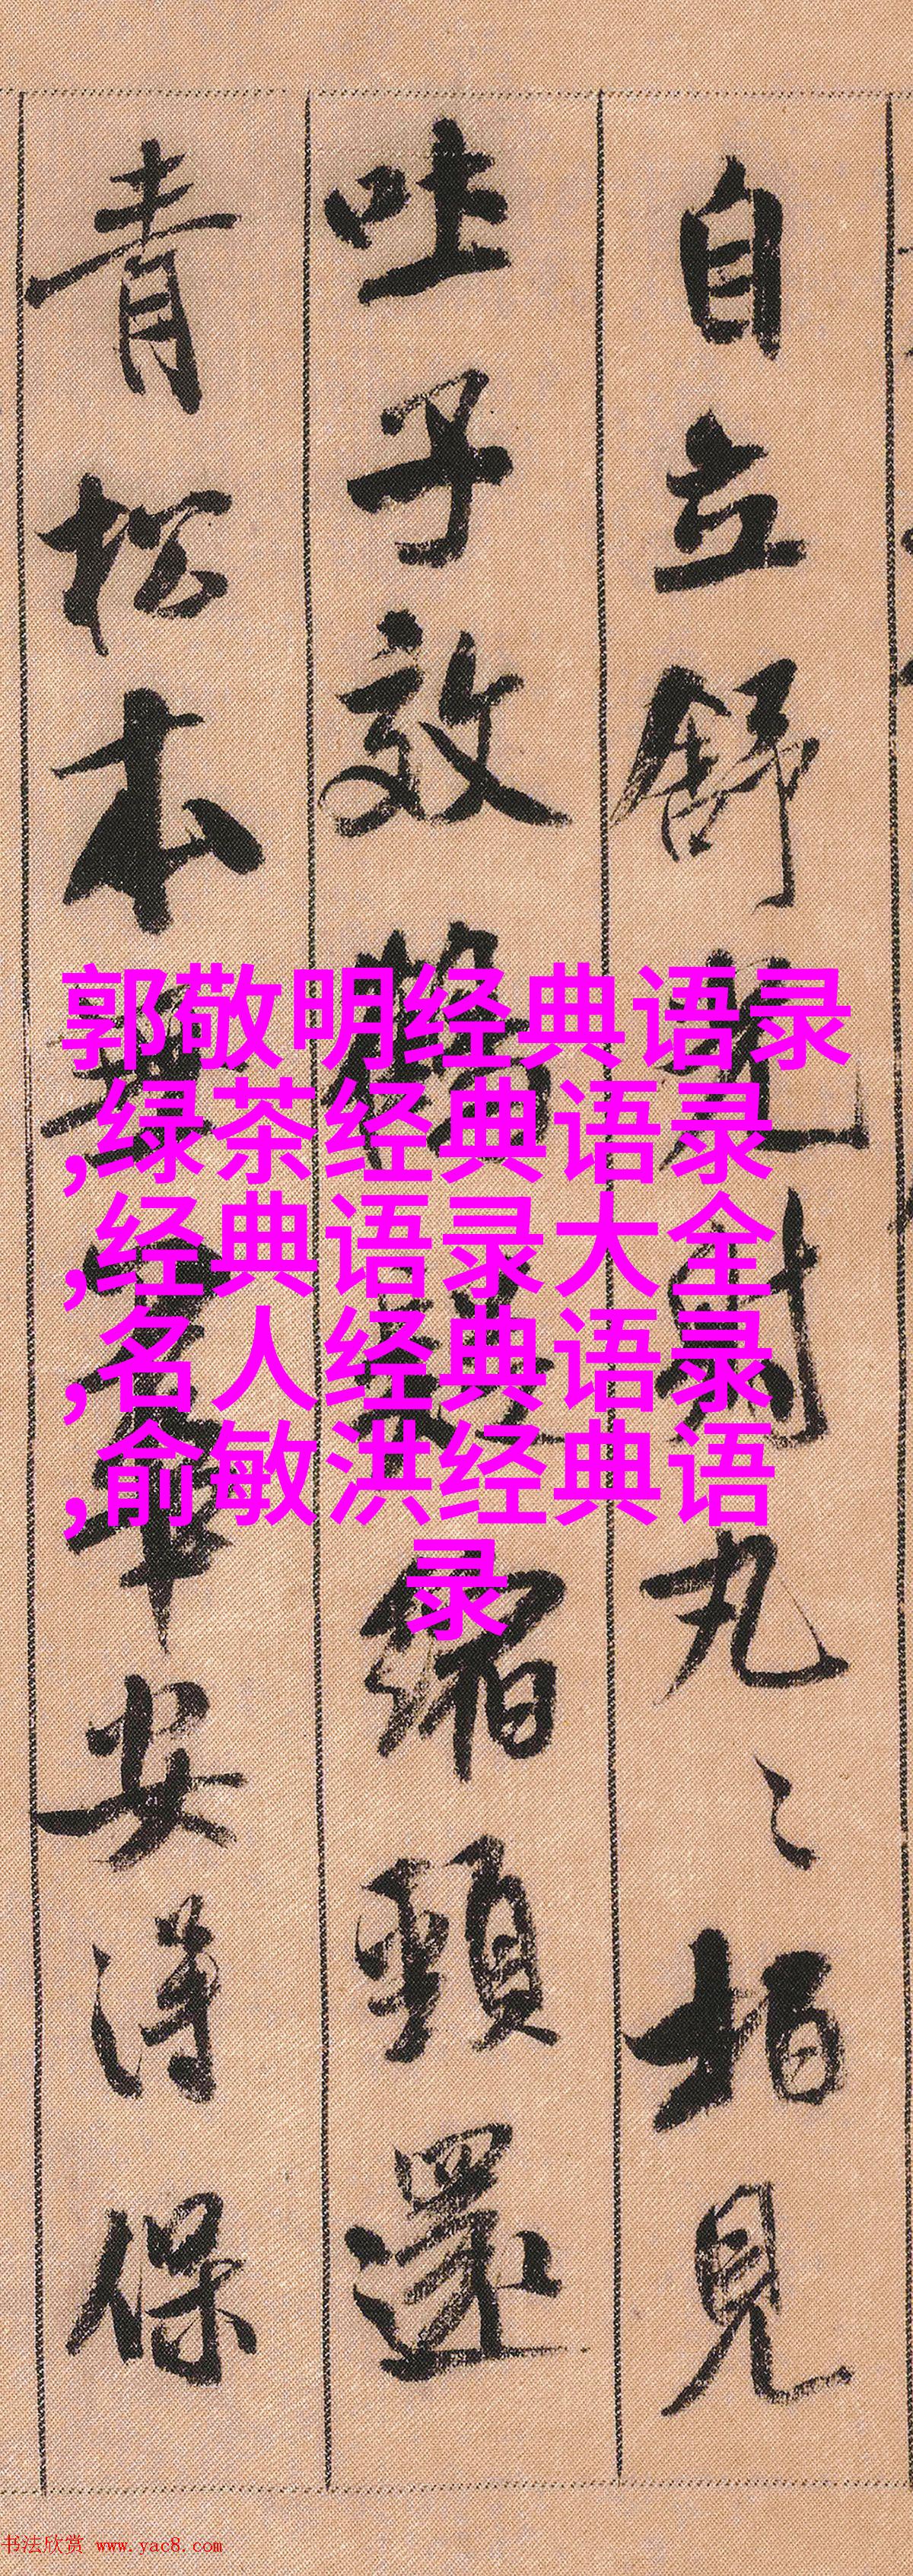 自立舒光射丸〻柏見
吐子效鶴疑縮頸還
青松本無華安得保
郭敬明经典语录
,绿茶经典语录
,经典语录大全
,名人经典语录
,俞敏洪经典语
录
书法欣赏 www.yac8.com